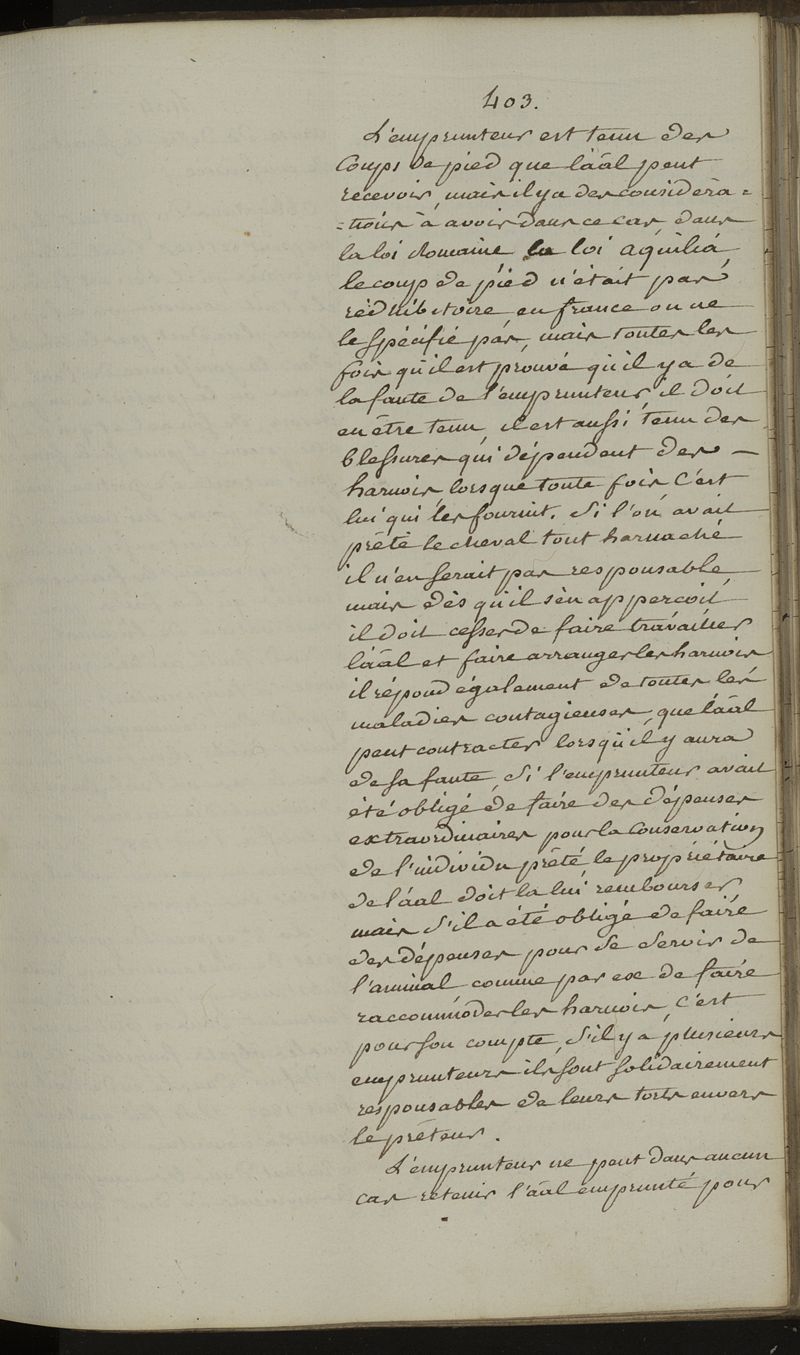 403.
L'emprunteur est tenu des
Coups de pied que l'aâl peut
recevoir, mais il y a des considéra=
=tions à avoir dans ce cas, dans
la loi Romaine la loi aquilia,
le coup de pied n'était pas
rédhibitoire en france on ne
le spécifie pas, mais toutes les
fois qu'il est prouvé qu'il y a de
la faute de l'emprunteur, il doit
en être tenu, il est aussi tenu des
blessures qui dépendent des —
harnois, lorsque toute fois C'est
lui qui les fournit. Si l'on avait
prêté le cheval tout harnaché
il n'en serait pas responsable,
mais dès qu'il s'en apperçoit
il doit cesser de faire travailler
l'aâl et faire arranger les harnois
il répond également de toutes les
maladies contagieuses, que l'aâl
peut contracter lorsqu'il y aura
de sa faute, Si l'emprunteur avait
été obligé de faire des dépenses
extraordinaires pour la Conservation
de l'individu prêté, le propriétaire
de l'aâl doit la lui rembourser
mais S'il a été obligé de faire
des dépenses pour Se Servir de
l'animal comme par ex de faire
raccommoder les harnois, C'est
pour son compte, S'il y a plusieurs
emprunteurs ils sont solidairement
responsables de leurs torts envers
le prêteur.
L'emprunteur ne peut dans aucun
cas retenir l'aâl emprunté pour